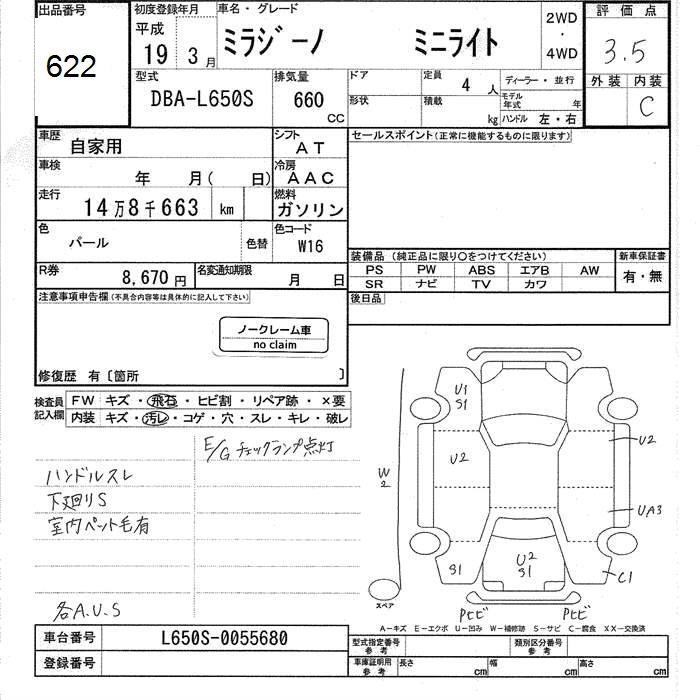 出品番号
622
初度登録年月
平成
19 3月
車名・グレード
ミラジーノ ミニライト
2WD
・
4WD
評価点
3.5
外装 内装
C
型式
DBA-L650S
排気量
660
CC
ドア
形状
定員
4人
積載
kg
ディーラー・並行
モデル年式 年
ハンドル 左・右
車歴
自家用
シフト
AT
車検
年 月( 日)
冷房
AAC
走行
14万8千663 km
燃料
ガソリン
色
パール
色替
色コード
W16
R券
8,670円
名変通知期限
月 日
セールスポイント(正常に機能するものに限ります)
装備品(純正品に限り○をつけてください)
PS PW ABS エアB AW
SR ナビ TV カワ
新車保証書
有・無
後日品
注意事項申告欄(不具合内容等は具体的に記入して下さい)
ノークレーム車
no claim
修復歴 有〔箇所 〕
検査員記入欄
FW キズ・飛石・ヒビ割・リペア跡・×要
内装 キズ・汚レ・コゲ・穴・スレ・キレ・破レ
E/Gチェックランプ点灯
ハンドルスレ
下廻りS
室内ペット毛有
各A.U.S
W2
U1
S1
U2
U2
UA3
S1
U2
S1
C1
スペア
Pヒビ
Pヒビ
A-キズ E-エクボ U-凹み W-補修跡 S-サビ C-腐食 XX-交換済
車台番号
L650S-0055680
登録番号
型式指定番号
参考
類別区分番号
参考
車庫証明用
参考
長さ cm 幅 cm 高さ cm